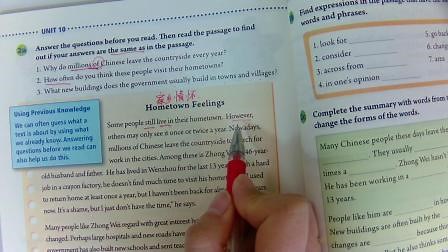 UNIT 10
2a
Answer the questions before you read. Then read the passage to find
out if your answers are the same as in the passage.
1. Why do millions of Chinese leave the countryside every year?
2. How often do you think these people visit their hometowns?
3. What new buildings does the government usually build in towns and villages?
家乡情怀
Hometown Feelings
Using Previous Knowledge
We can often guess what a
text is about by using what
we already know. Answering
questions before we read can
also help us do this.
Some people still live in their hometown. However,
others may only see it once or twice a year. Nowadays,
millions of Chinese leave the countryside to search for
work in the cities. Among these is Zhong 46-year-
old husband and father. He has lived in Wenzhou for the last 13 years. a hard
job in a crayon factory, he doesn't find much time to visit his used
to return home at least once a year, but I haven't been back for almost
now. It's a shame, but I just don't have the time," he says.
Many people like Zhong Wei regard with great interest
changed. Perhaps large hospitals and new roads have
government has also built new schools and sent
Find expressions in the passage that have
words and phrases.
1. look for
2. consider
3. across from
4. in one's opinion
5. go back
6. chang
7. ans
Complete the summary with words from
change the forms of the words.
Many Chinese people these days leave
. They usually
times a . Zhong Wei
He has been working in a
13 years.
People like him are in how
New buildings are often built by the
changes are because